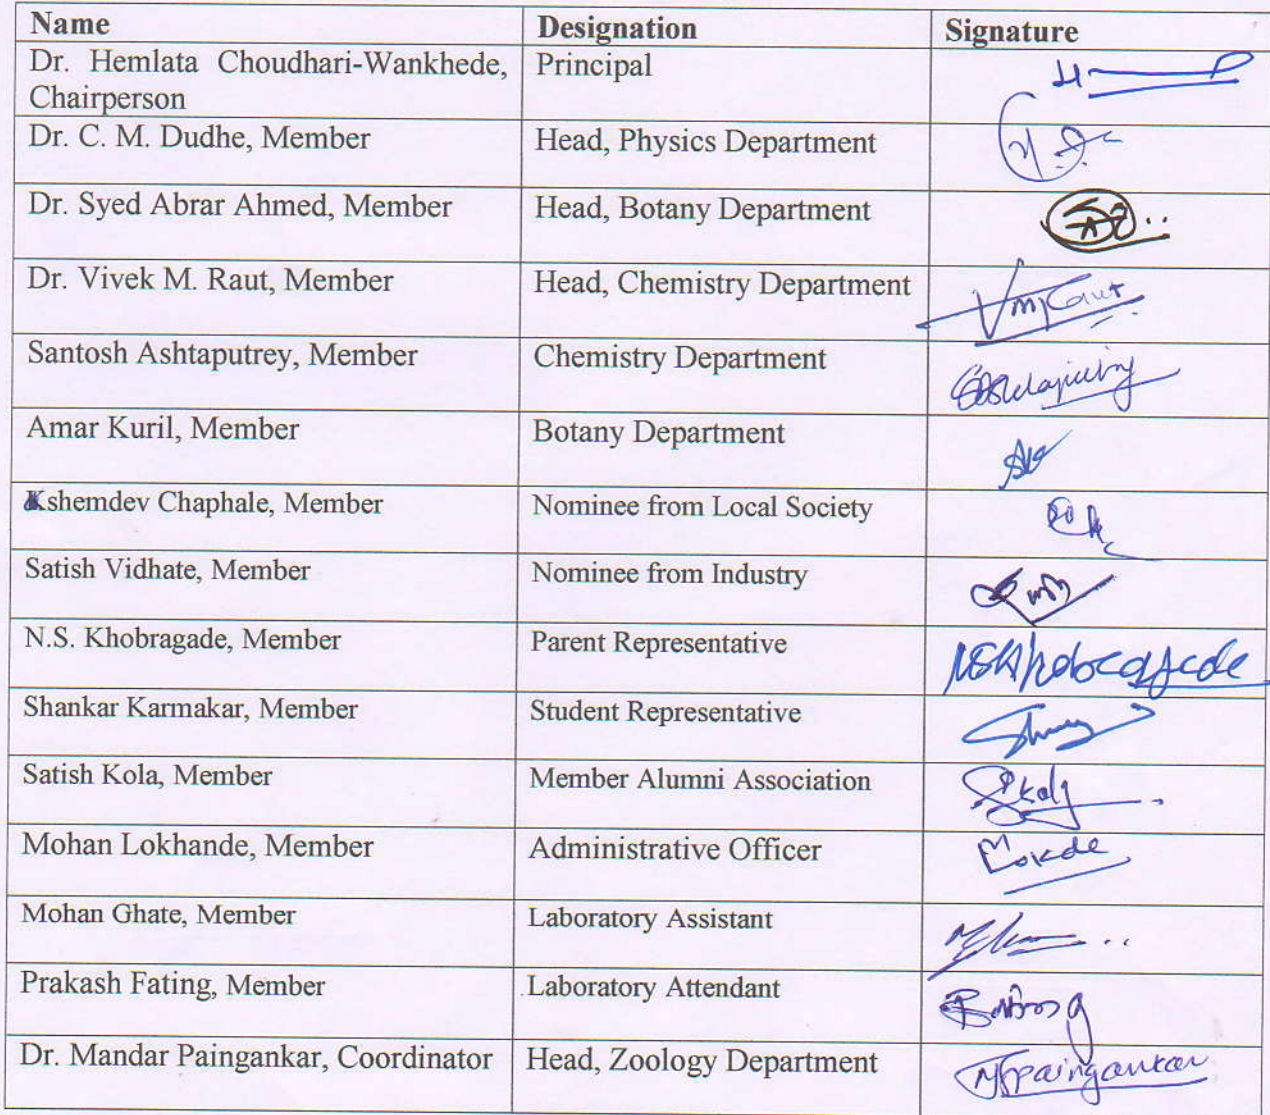 Name Designation Signature
Dr. Hemlata Choudhari-Wankhede, Principal
Chairperson
Dr. C. M. Dudhe, Member Head, Physics Department
Dr. Syed Abrar Ahmed, Member Head, Botany Department
Dr. Vivek M. Raut, Member Head, Chemistry Department
Santosh Ashtaputrey, Member Chemistry Department
Amar Kuril, Member Botany Department
Kshemdev Chaphale, Member Nominee from Local Society
Satish Vidhate, Member Nominee from Industry
N.S. Khobragade, Member Parent Representative
Shankar Karmakar, Member Student Representative
Satish Kola, Member Member Alumni Association
Mohan Lokhande, Member Administrative Officer
Mohan Ghate, Member Laboratory Assistant
Prakash Fating, Member Laboratory Attendant
Dr. Mandar Paingankar, Coordinator Head, Zoology Department